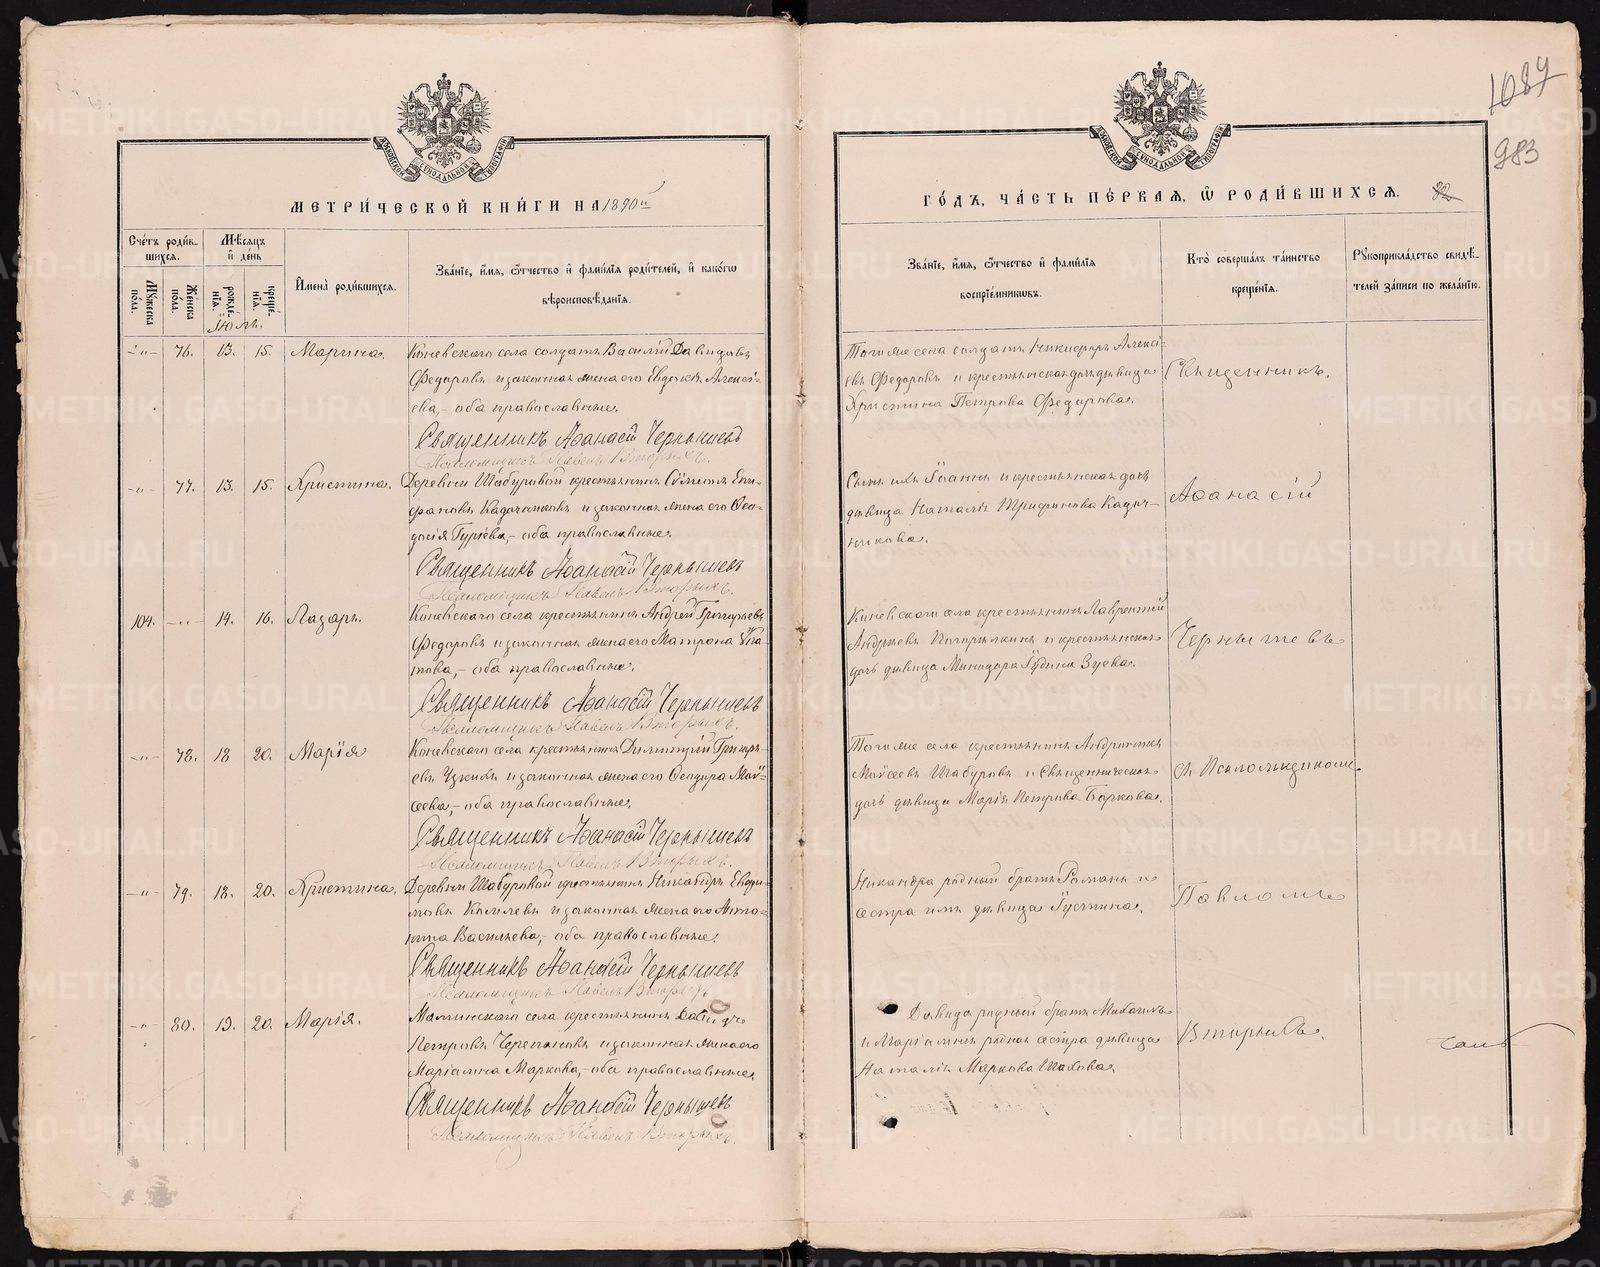 1087
983
МЕТРИ́ЧЕСКОЙ КНИ́ГИ НА 1890й
ГО́ДЪ, ЧА́СТЬ ПЕ́РВАЯ, Ѡ РОДИ́ВШИХСЯ.
Сче́тъ роди́в-
шихся.
Мѣ́сяцъ
и де́нь
Му́жеска
пола.
Же́нска
пола.
рожде́-
нїя.
креще́-
нїя.
Имена̀ роди́вшихся.
Зва́нїе, и́мя, ѻ҆́тчество и҆ фами́лїя роди́телей, и҆ како́гѡ
вѣроисповѣ́данїя.
Зва́нїе, и́мя, ѻ҆́тчество и҆ фами́лїя
воспрїе́мникѡвъ.
Кто̀ соверша́лъ та́инство
креще́нїя.
Рꙋкоприкла́дство свидѣ́-
телей за́писи по жела́нїю.
Іюль.
-"- 76. 13. 15. Марина.
Коневскаго села солдатъ Василій Давидовъ
Федоровъ и законная жена его Евдокія Алексі-
ева, - оба православные.
Священникъ Аѳанасій Чернышевъ
Псаломщикъ Павелъ Вторыхъ.
Тогоже села солдатъ Никифоръ Алексі-
евъ Федоровъ и крестьянская дочь дѣвица
Христина Петрова Федорова.
Священникъ
-"- 77. 13. 15. Христина.
Деревни Шабуровой крестьянинъ Сѵмеонъ Епи-
фановъ Кадочниковъ и законная жена его Ѳео-
досія Гурієва, - оба православные.
Священникъ Аѳанасій Чернышевъ
Псаломщикъ Павелъ Вторыхъ.
Сынъ ихъ Іоаннъ и крестьянская дочь
дѣвица Наталія Трифонова Кадоч-
никова.
Аѳанасій
104. -"- 14. 16. Лазарь.
Коневскаго села крестьянинъ Андрей Григорьевъ
Федоровъ и законная жена его Матрона Ипа-
това, - оба православные.
Священникъ Аѳанасій Чернышевъ
Псаломщикъ Павелъ Вторыхъ.
Коневскаго села крестьянинъ Лаврентій
Андреевъ и крестьянская
дочь дѣвица Минодора Зуева.
Чернышевъ
-"- 78. 18 20. Марія
Коневскаго села крестьянинъ Димитрій Григорь-
евъ и законная жена его Ѳеодора Мой-
сеева, - оба православные.
Священникъ Аѳанасій Чернышевъ
Псаломщикъ Павелъ Вторыхъ.
Тогоже села крестьянинъ Андроникъ
Мойсеевъ Шабуровъ и Священническая
дочь дѣвица Марія Петрова Боркова.
съ Псаломщикомъ
-"- 79. 18. 20. Христина.
Деревни Шабуровой крестьянинъ Никандръ Евфи-
мовъ и законная жена его Анто-
нина Васильева, - оба православные.
Священникъ Аѳанасій Чернышевъ
Псаломщикъ Павелъ Вторыхъ
Никандра родный братъ Романъ и
сестра имъ дѣвица Іустина.
Павломъ
-"- 80. 19. 20. Марія.
села крестьянинъ Давидъ
Петровъ Черепановъ и законная жена его
Маріамна Маркова, - оба православные.
Священникъ Аѳанасій Чернышевъ
Псаломщикъ Павелъ Вторыхъ.
Давида родный братъ Михаилъ
и Маріамны родная сестра дѣвица
Наталія Маркова
Вторыхъ.
METRIKI.GASO-URAL.RU